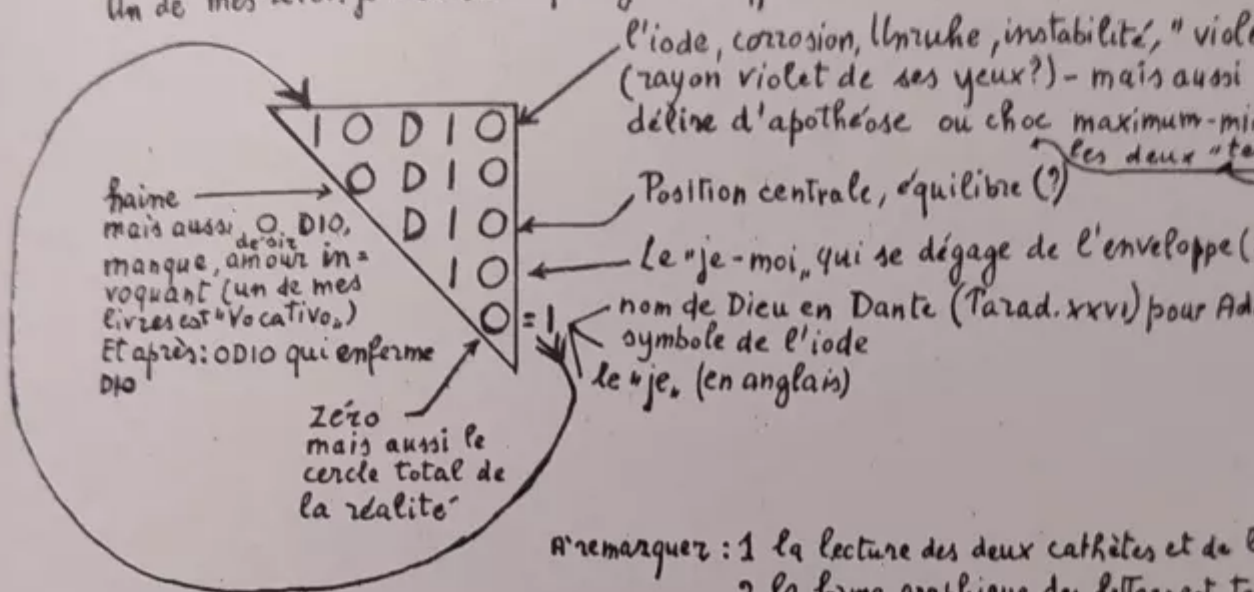 Un de mes
l'iode, corrosion, Unruhe, instabilité, "
(rayon violet de ses yeux?) - mais aussi
délire d'apothéose ou choc maximum-
les deux
I O D I O
O D I O
D I O
I O
O = I
haine
mais aussi O DIO,
désir
manque, amour in=
voquant (un de mes
livres est "Vocativo")
Et après: ODIO qui enferme
DIO
zéro
mais aussi le
cercle total de
la réalité
Position centrale, équilibre (?)
Le "je-moi" qui se dégage de l'enveloppe (
nom de Dieu en Dante (Parad. XXVI) pour Ad
symbole de l'iode
le "je" (en anglais)
A remarquer: 1 la lecture des deux cathètes et de
2 la forme graphique des lettres